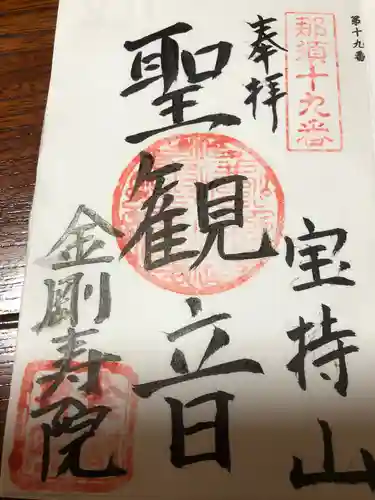 第十九番
那須十九番
奉拝
宝持山
聖観音
金剛寿院